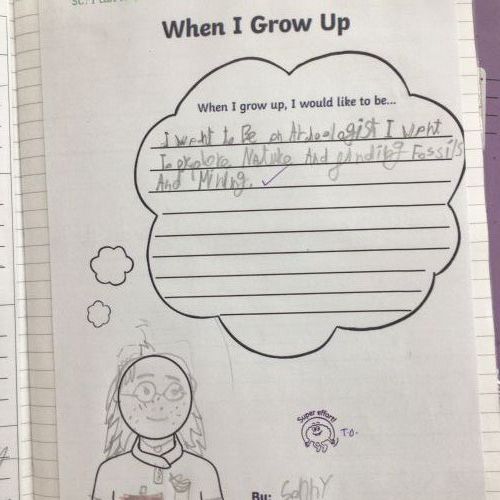 When I Grow Up
When I grow up, I would like to be...
I want to Be an Ardeologist I want
To explore Nature And finding Fossils
And Mining.
Super effort!
T.O.
By: Sonny